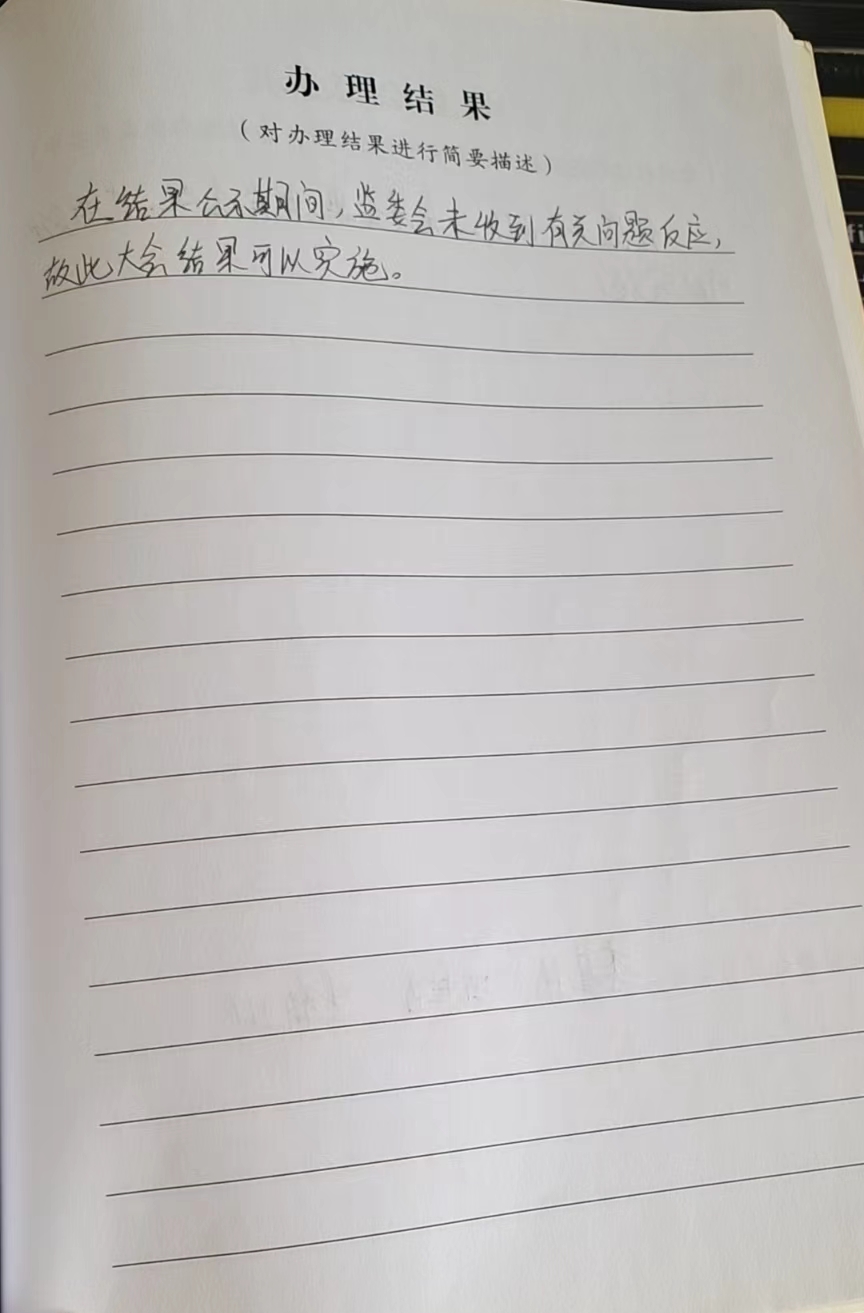 办理结果
（对办理结果进行简要描述）
在结果公示期间，监委会未收到有关问题反应，
故此大会结果可以实施。